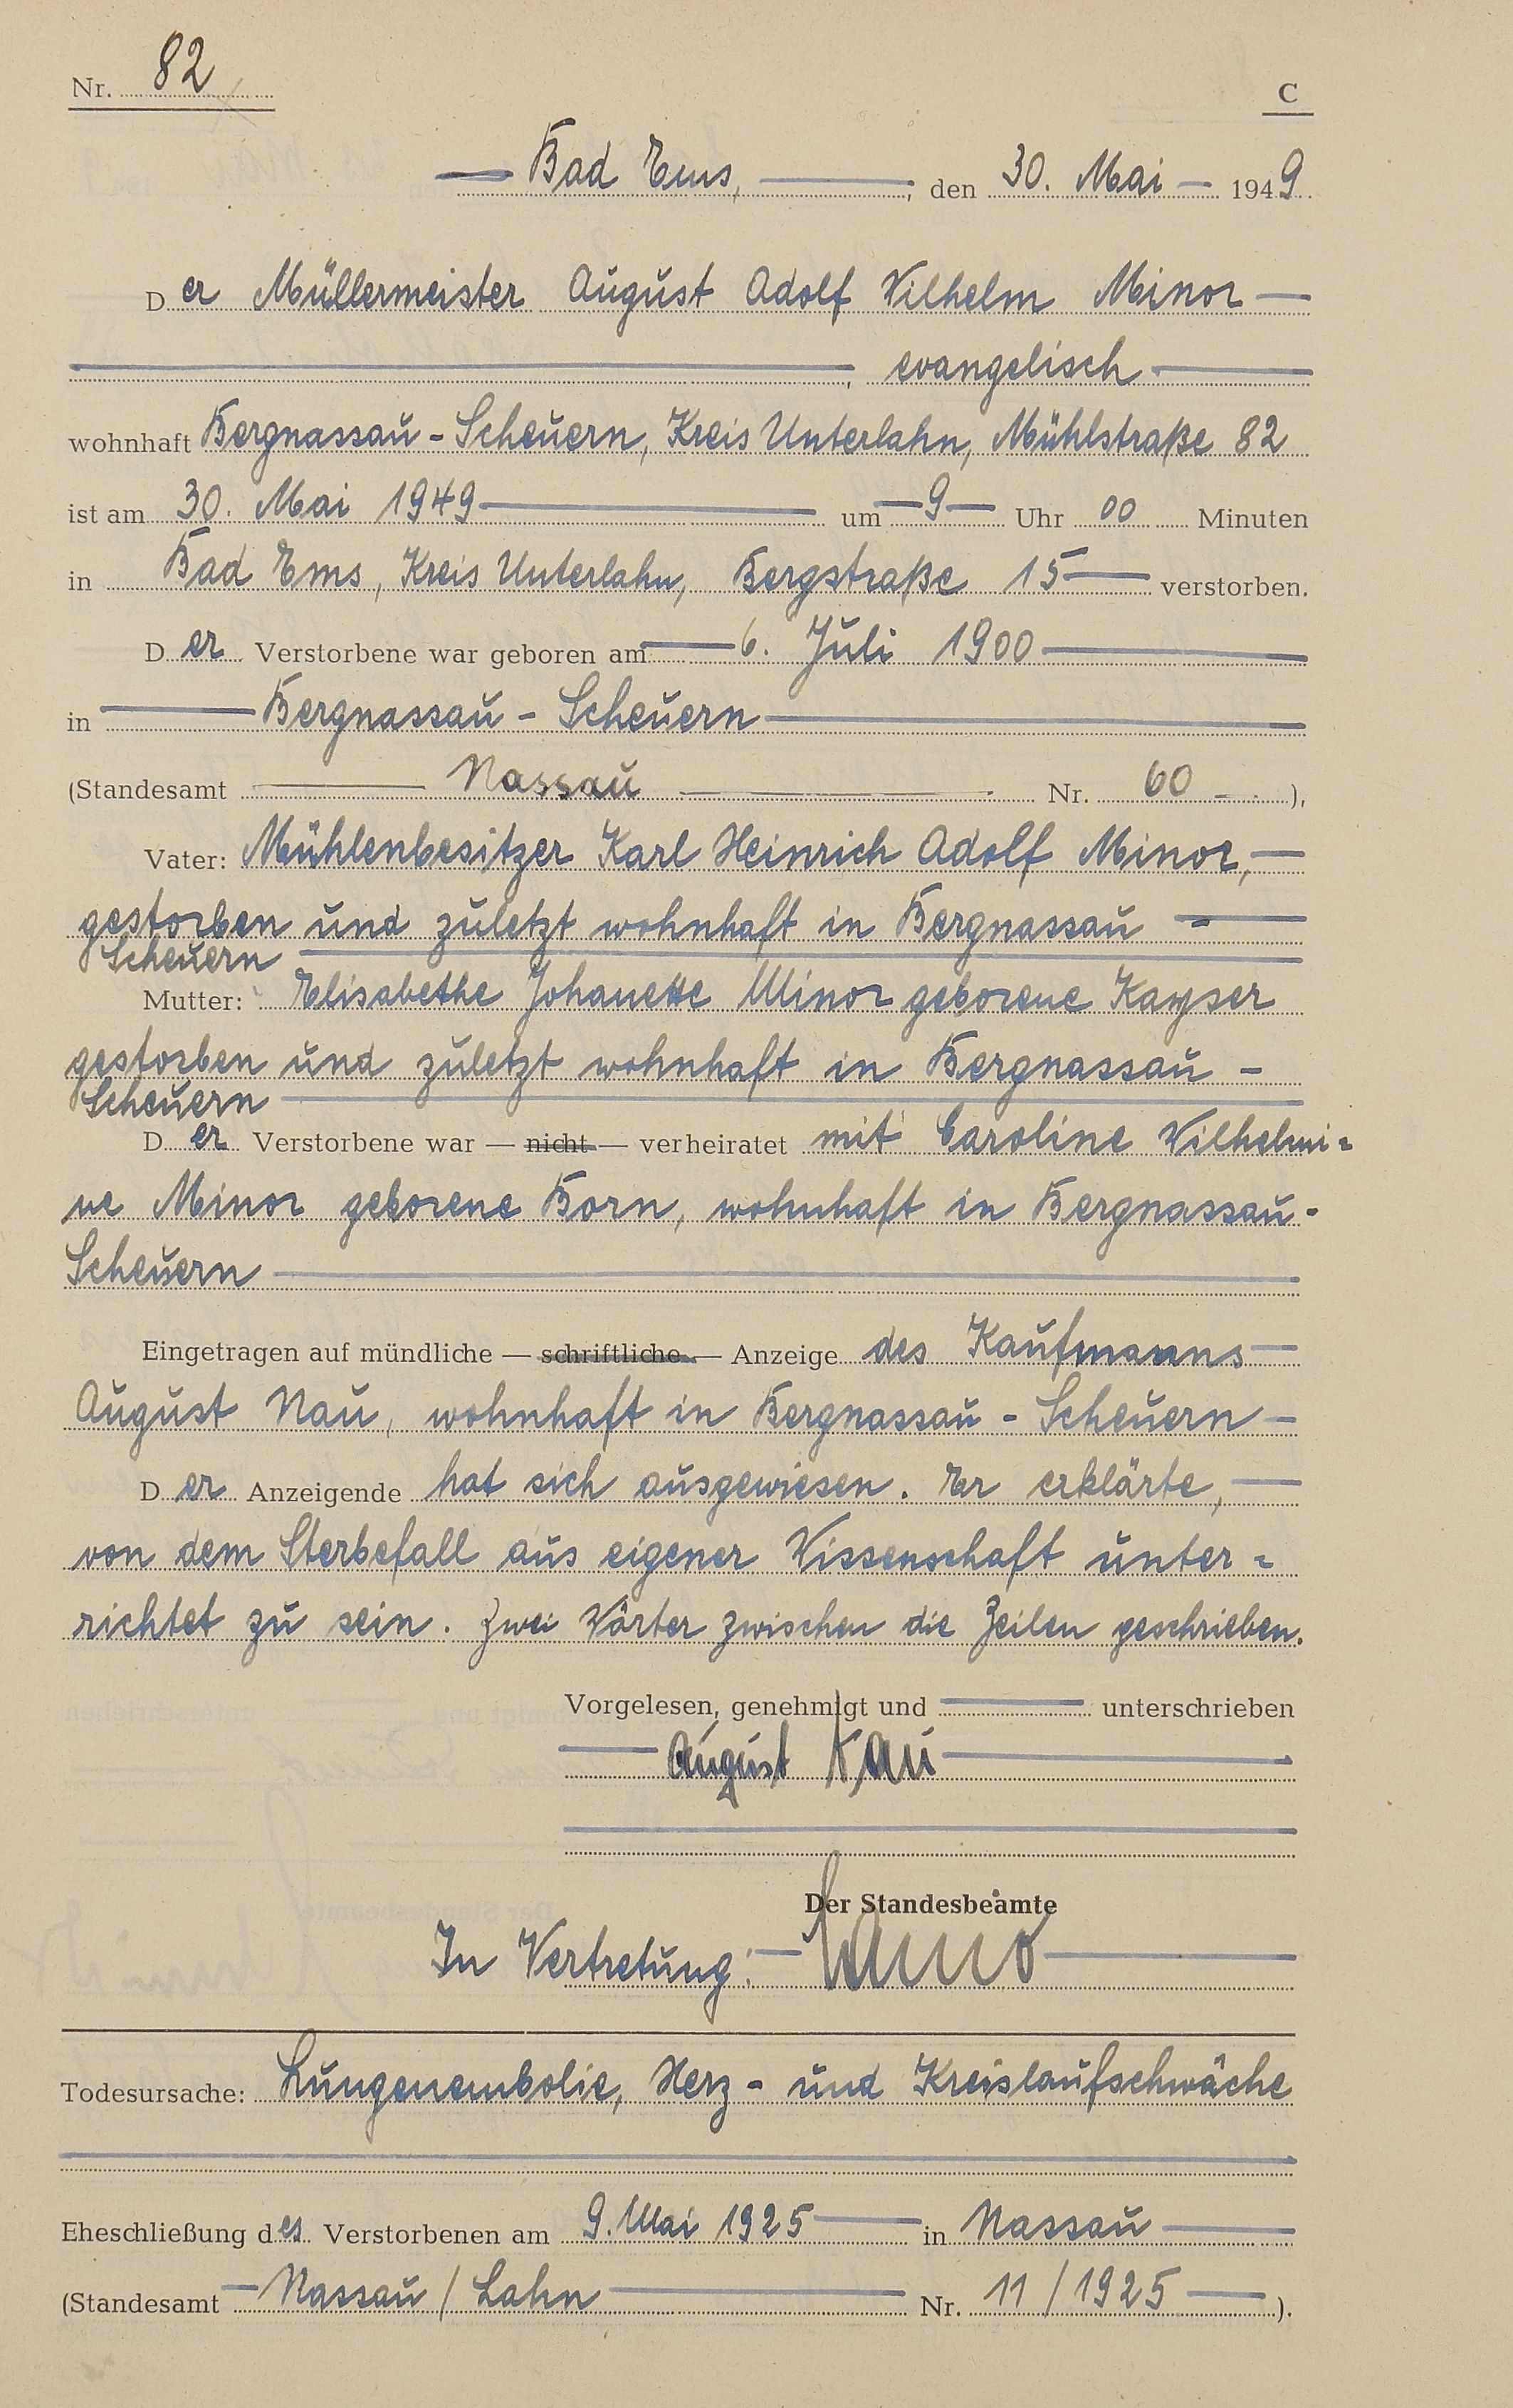 Nr. 82
C
Bad Ems, den 30. Mai 1949
Der Müllermeister August Adolf Wilhelm Minor
, evangelisch
wohnhaft Bergnassau-Scheuern, Kreis Unterlahn, Mühlstraße 82
ist am 30. Mai 1949 um 9 Uhr 00 Minuten
in Bad Ems, Kreis Unterlahn, Bergstraße 15 verstorben.
Der Verstorbene war geboren am 6. Juli 1900
in Bergnassau - Scheuern
(Standesamt Nassau Nr. 60 ),
Vater: Mühlenbesitzer Karl Heinrich Adolf Minor,
gestorben und zuletzt wohnhaft in Bergnassau -
Scheuern
Mutter: Elisabethe Johanette Minor geborene Kayser
gestorben und zuletzt wohnhaft in Bergnassau -
Scheuern
Der Verstorbene war — nicht — verheiratet mit Caroline Wilhelmi=
ne Minor geborene Born, wohnhaft in Bergnassau-
Scheuern
Eingetragen auf mündliche — schriftliche — Anzeige des Kaufmanns
August Nau, wohnhaft in Bergnassau - Scheuern
Der Anzeigende hat sich ausgewiesen. Er erklärte,
von dem Sterbefall aus eigener Wissenschaft unter=
richtet zu sein. Zwei Wörter zwischen die Zeilen geschrieben.
Vorgelesen, genehmigt und unterschrieben
August Nau
Der Standesbeamte
In Vertretung:
Todesursache: Lungenembolie, Herz- und Kreislaufschwäche
Eheschließung des Verstorbenen am 9. Mai 1925 in Nassau
(Standesamt Nassau / Lahn Nr. 11/1925 ).